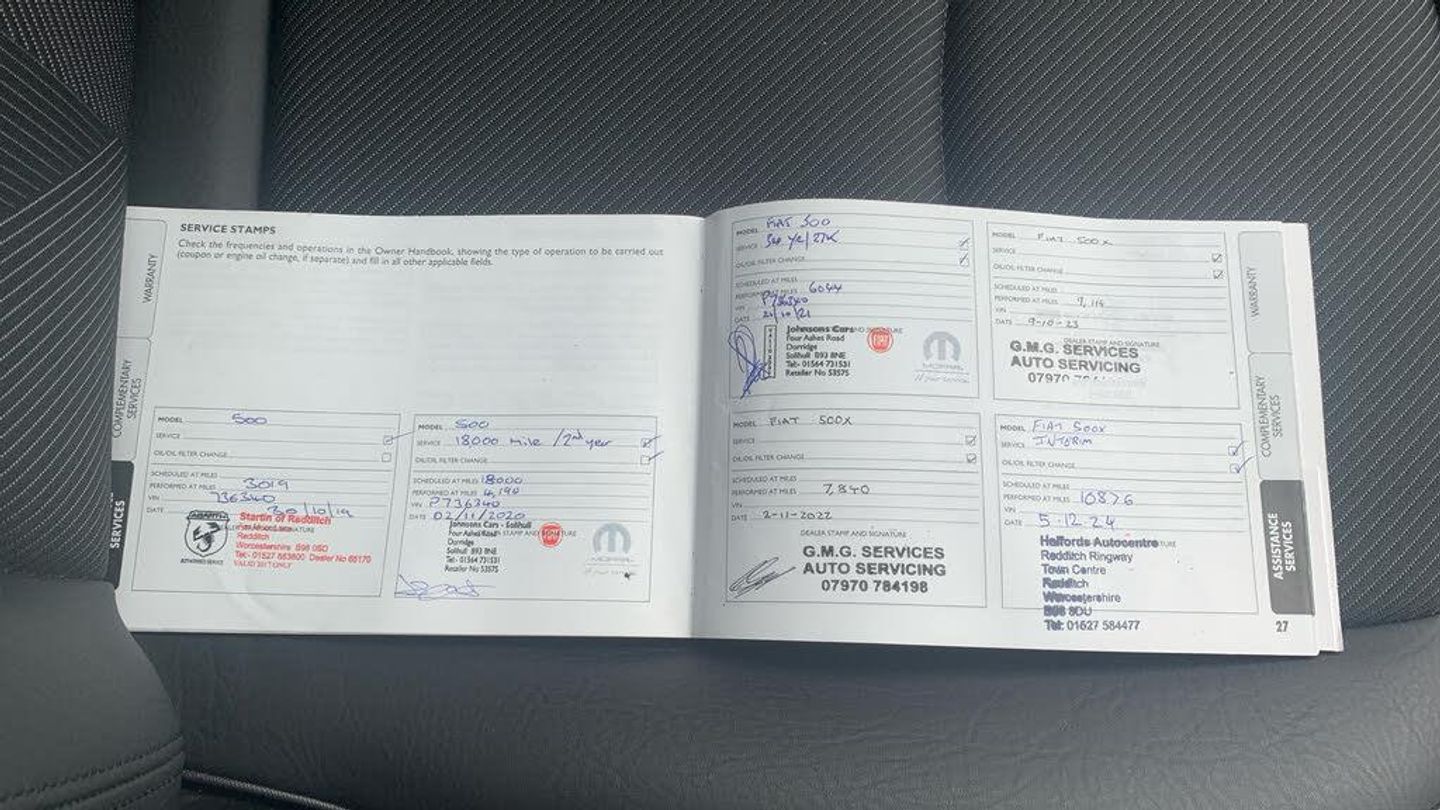 SERVICE STAMPS
Check the frequencies and operations in the Owner Handbook, showing the type of operation to be carried out
(coupon or engine oil change, if separate) and fill in all other applicable fields.
WARRANTY
COMPLEMENTARY
SERVICES
SERVICES
MODEL 500
SERVICE
OIL/OIL FILTER CHANGE
SCHEDULED AT MILES
PERFORMED AT MILES 3019
VIN 736340
DATE 30/10/19
ABARTH
Startin of Redditch
Redditch
Worcestershire B98 0SD
Tel:- 01527 883800 Dealer No 68170
VALID 2017 ONLY
MODEL 500
SERVICE 18000 mile / 2nd year
OIL/OIL FILTER CHANGE
SCHEDULED AT MILES 18000
PERFORMED AT MILES 4,190
VIN P736340
DATE 02/11/2020
Johnsons Cars - Solihull
Four Ashes Road
Dorridge
Solihull B93 8NE
Tel:- 01564 731531
Retailer No 53575
FIAT
MODEL FIAT 500
SERVICE 3rd YR/27K
OIL/OIL FILTER CHANGE
SCHEDULED AT MILES
PERFORMED AT MILES 6044
VIN P736340
DATE 21/10/21
Johnsons Cars
Four Ashes Road
Dorridge
Solihull B93 8NE
Tel:- 01564 731531
Retailer No 53575
FIAT
MOPAR
MODEL FIAT 500X
SERVICE
OIL/OIL FILTER CHANGE
SCHEDULED AT MILES
PERFORMED AT MILES 9,114
VIN
DATE 9-10-23
DEALER STAMP AND SIGNATURE
G.M.G. SERVICES
AUTO SERVICING
07970
MODEL FIAT 500X
SERVICE
OIL/OIL FILTER CHANGE
SCHEDULED AT MILES
PERFORMED AT MILES 7,840
VIN
DATE 2-11-2022
DEALER STAMP AND SIGNATURE
G.M.G. SERVICES
AUTO SERVICING
07970 784198
MODEL FIAT 500X
SERVICE INTERIM
OIL/OIL FILTER CHANGE
SCHEDULED AT MILES
PERFORMED AT MILES 10876
VIN
DATE 5.12.24
Halfords Autocentre
Redditch Ringway
Town Centre
Redditch
Worcestershire
Tel: 01527 584477
WARRANTY
COMPLEMENTARY
SERVICES
ASSISTANCE
SERVICES
27